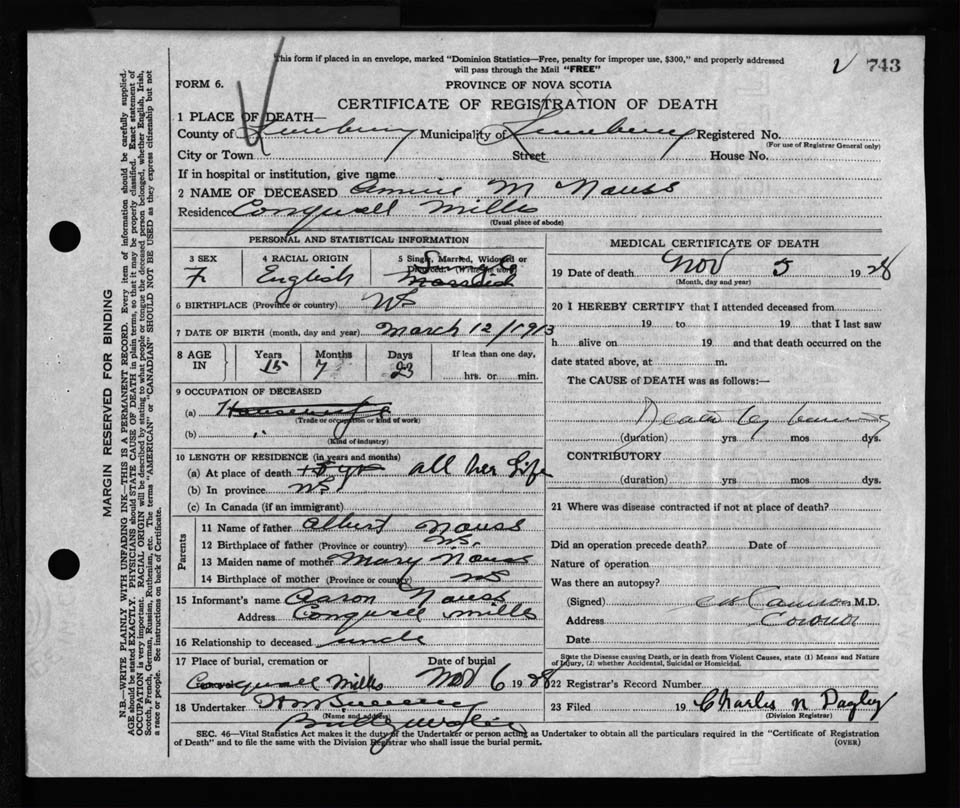 This form if placed in an envelope, marked "Dominion Statistics—Free, penalty for improper use, $300," and properly addressed
will pass through the Mail "FREE"
√ 743
FORM 6.
PROVINCE OF NOVA SCOTIA
CERTIFICATE OF REGISTRATION OF DEATH
1 PLACE OF DEATH—
County of Lunenburg Municipality of Lunenburg Registered No.
(For use of Registrar General only)
City or Town Street House No.
If in hospital or institution, give name
2 NAME OF DECEASED Annie M Nauss
Residence Conquall Mills
(Usual place of abode)
PERSONAL AND STATISTICAL INFORMATION
3 SEX 4 RACIAL ORIGIN 5 Single, Married, Widowed or Divorced. (Write the word)
F English Single Married
6 BIRTHPLACE (Province or country) NS
7 DATE OF BIRTH (month, day and year) March 12/1913
8 AGE IN Years Months Days If less than one day,
15 7 23 hrs. or min.
9 OCCUPATION OF DECEASED
(a) Housewife
(Trade or occupation or kind of work)
(b)
(Kind of industry)
10 LENGTH OF RESIDENCE (in years and months)
(a) At place of death 15 yrs all her Life
(b) In province NS
(c) In Canada (if an immigrant)
Parents
11 Name of father Albert Nauss
12 Birthplace of father (Province or country) NS.
13 Maiden name of mother Mary Nauss
14 Birthplace of mother (Province or country) NS
15 Informant's name Aaron Nauss
Address Conquall Mills
16 Relationship to deceased uncle
17 Place of burial, cremation or Date of burial
Conquall Mills Nov 6 1928
18 Undertaker
(Name and address)
MEDICAL CERTIFICATE OF DEATH
19 Date of death Nov 5 1928
(Month, day and year)
20 I HEREBY CERTIFY that I attended deceased from
19 to 19 that I last saw
h alive on 19 and that death occurred on the
date stated above, at m.
The CAUSE of DEATH was as follows:—
Death by
(duration) yrs mos dys.
CONTRIBUTORY
(duration) yrs mos dys.
21 Where was disease contracted if not at place of death?
Did an operation precede death? Date of
Nature of operation
Was there an autopsy?
(Signed) M.D.
Address Coroner
Date
State the Disease causing Death, or in death from Violent Causes, state (1) Means and Nature
of Injury, (2) whether Accidental, Suicidal or Homicidal.
22 Registrar's Record Number
23 Filed 19 Charles N
(Division Registrar)
SEC. 46—Vital Statistics Act makes it the duty of the Undertaker or person acting as Undertaker to obtain all the particulars required in the "Certificate of Registration
of Death" and to file the same with the Division Registrar who shall issue the burial permit.
(OVER)
MARGIN RESERVED FOR BINDING
N.B.—WRITE PLAINLY WITH UNFADING INK—THIS IS A PERMANENT RECORD. Every item of information should be carefully supplied.
AGE should be stated EXACTLY. PHYSICIANS should STATE CAUSE OF DEATH in plain terms, so that it may be properly classified. Exact statement of
OCCUPATION is very important. RACIAL ORIGIN will be described by stating to what people or tongue the deceased person belonged, whether English, Irish,
Scotch, French, German, Russian, Ruthenian, etc. The terms "AMERICAN" or "CANADIAN" SHOULD NOT BE USED as they express citizenship but not
a race or people. See instructions on back of Certificate.